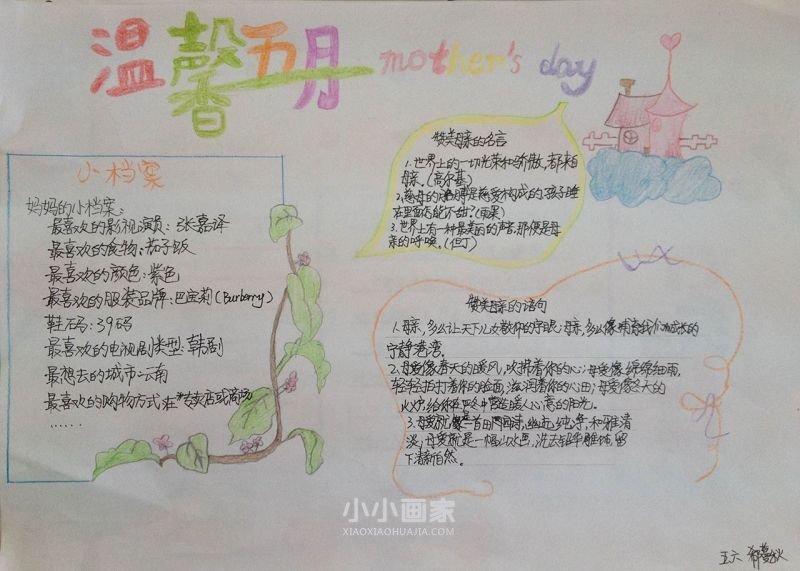 温馨五月 mother's day
小档案
妈妈的小档案:
最喜欢的影视演员:张嘉译
最喜欢的食物:茄子饭
最喜欢的颜色:紫色
最喜欢的服装品牌:巴宝莉(Burberry)
鞋码:39码
最喜欢的电视剧类型:韩剧
最想去的城市:云南
最喜欢的购物方式:在专卖店或商场
......
赞美母亲的名言
1.世界上的一切光荣和骄傲,都来自
母亲。(高尔基)
2.慈母的胳膊是慈爱构成的,孩子睡
在里面怎能不甜?(雨果)
3.世界上有一种最美的声音,那便是母
亲的呼唤。(但丁)
赞美母亲的语句
1.母亲,多么让天下儿女敬仰的字眼;母亲,多么像哺育我们成长的
宁静港湾。
2.母爱像春天的暖风,吹拂着你的心;母爱像绵绵细雨,
轻轻拍打着你的脸面,滋润着你的心田;母爱像冬天的
火炉,给你在严冬中营造暖人心窝的阳光。
3.母爱就像一首田园诗,幽远纯净,和雅清
淡;母爱就是一幅山水画,洗去铅华雕饰,留
下清新自然。
小小画家
XIAOXIAOHUAJIA.COM
五六